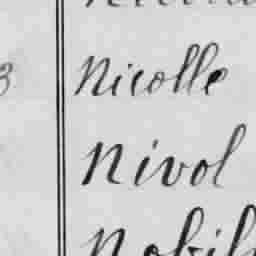 3 Nicolle
Nivol